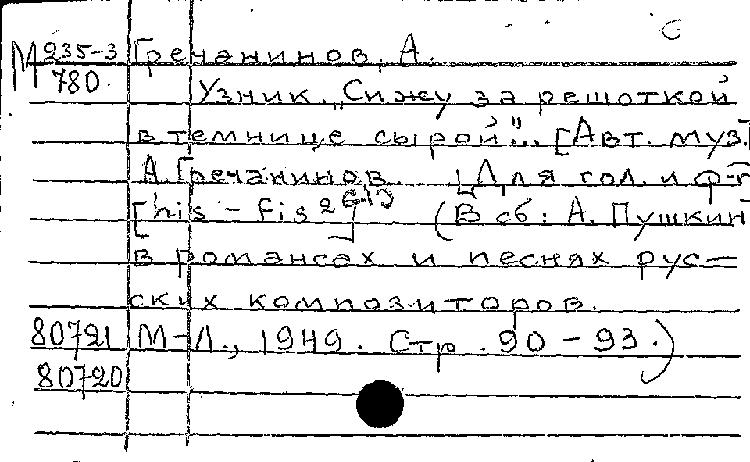 С
М 235-3 Гречанинов, А.
780 Узник. „Сижу за решоткой
в темнице сырой"... [Авт. муз.]
А. Гречанинов. [Для гол. и ф-п
[his - fis²] (В сб: А. Пушкин
в романсах и песнях рус-
ских композиторов.
80721 М-Л., 1949. Стр. 90-93.)
80720